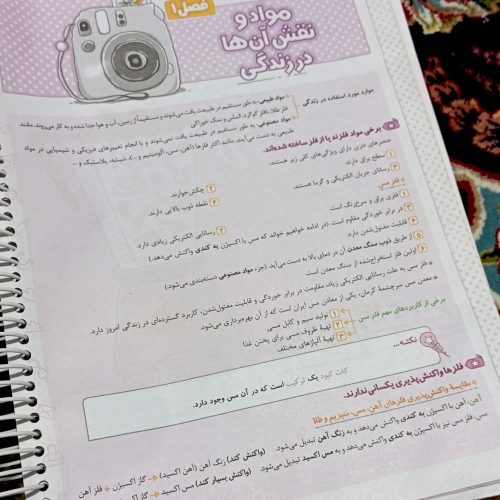 فصل ۱
مواد و
نقش آن‌ها
در زندگی
موارد مورد استفاده در زندگی
مواد طبیعی: به طور مستقیم در طبیعت یافت می‌شوند و مستقیماً از زمین، آب و هوا جدا شده و به کار می‌روند. مانند
فلز طلا، نافلز گوگرد، الماس و نمک خوراکی
مواد مصنوعی: به طور مستقیم در طبیعت یافت نمی‌شوند و با انجام تغییرهای فیزیکی و شیمیایی در مواد
طبیعی به دست می‌آیند. مانند اکثر فلزها (آهن، مس، آلومینیم و ...)، شیشه، پلاستیک و ...
برخی مواد فلزند یا از فلز ساخته شده‌اند.
عنصرهای فلزی دارای ویژگی‌های کلی زیر هستند:
۱ سطح براق دارند.
۲ چکش‌خوارند.
۳ رسانای جریان الکتریکی و گرما هستند.
۴ نقطه ذوب بالایی دارند.
فلز مس
۱ فلزی براق و سرخ‌رنگ است.
۲ رسانایی الکتریکی زیادی دارد.
۳ در برابر خوردگی مقاوم است. (در ادامه خواهیم خواند که مس با اکسیژن به کندی واکنش می‌دهد)
۴ قابلیت مفتول‌شدن دارد.
۵ از طریق ذوب سنگ معدن آن در دمای بالا به دست می‌آید. (جزء مواد مصنوعی دسته‌بندی می‌شود)
۶ اولین فلز استخراج‌شده از سنگ معدن است.
فلز مس به علت رسانایی الکتریکی زیاد، مقاومت در برابر خوردگی و قابلیت مفتول‌شدن، کاربرد گسترده‌ای در زندگی امروز دارد.
معدن مس سرچشمهٔ کرمان، یکی از معادن مس ایران است که از آن بهره‌برداری می‌شود.
برخی از کاربردهای مهم فلز مس
۱ تولید سیم و کابل مسی
۲ تهیهٔ ظروف مسی برای پختن غذا
۳ تهیهٔ آلیاژهای مختلف
نکته...
کات کبود یک ترکیب است که در آن مس وجود دارد.
فلزها واکنش‌پذیری یکسانی ندارند.
مقایسهٔ واکنش‌پذیری فلزهای آهن، مس، منیزیم و طلا
آهن: آهن با اکسیژن به کندی واکنش می‌دهد و به زنگ آهن تبدیل می‌شود. (واکنش کند) زنگ آهن (آهن اکسید) → گاز اکسیژن + فلز آهن
مس: فلز مس نیز با اکسیژن به کندی واکنش می‌دهد و به مس اکسید تبدیل می‌شود. (واکنش بسیار کند) مس اکسید → گاز اکسیژن